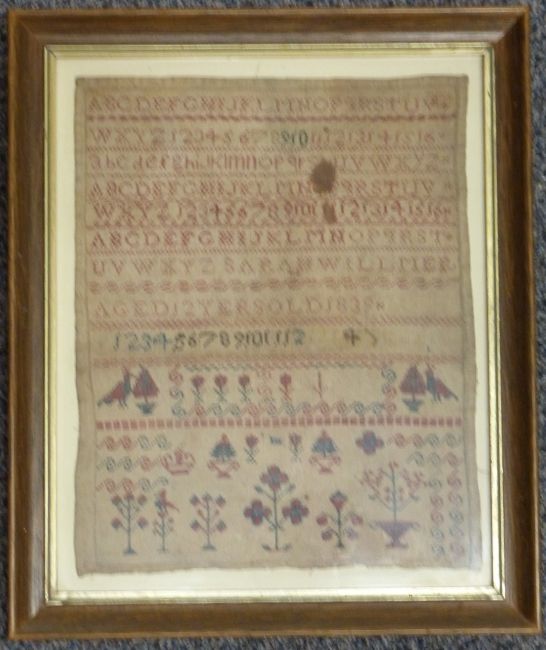 ABCDEFGHIJKLMNOPQRSTUV
WXYZ12345678910111213141516
abcdefghijklmnopqr UVWXYZ
ABCDEFGHIJKLMNOPQRSTUV
WXYZ12345678910 11213141516
ABCDEFGHIJKLMNOPQRST
UVWXYZ SARAH WILLMER
AGED 12 YERS OLD 1839
123456789101112